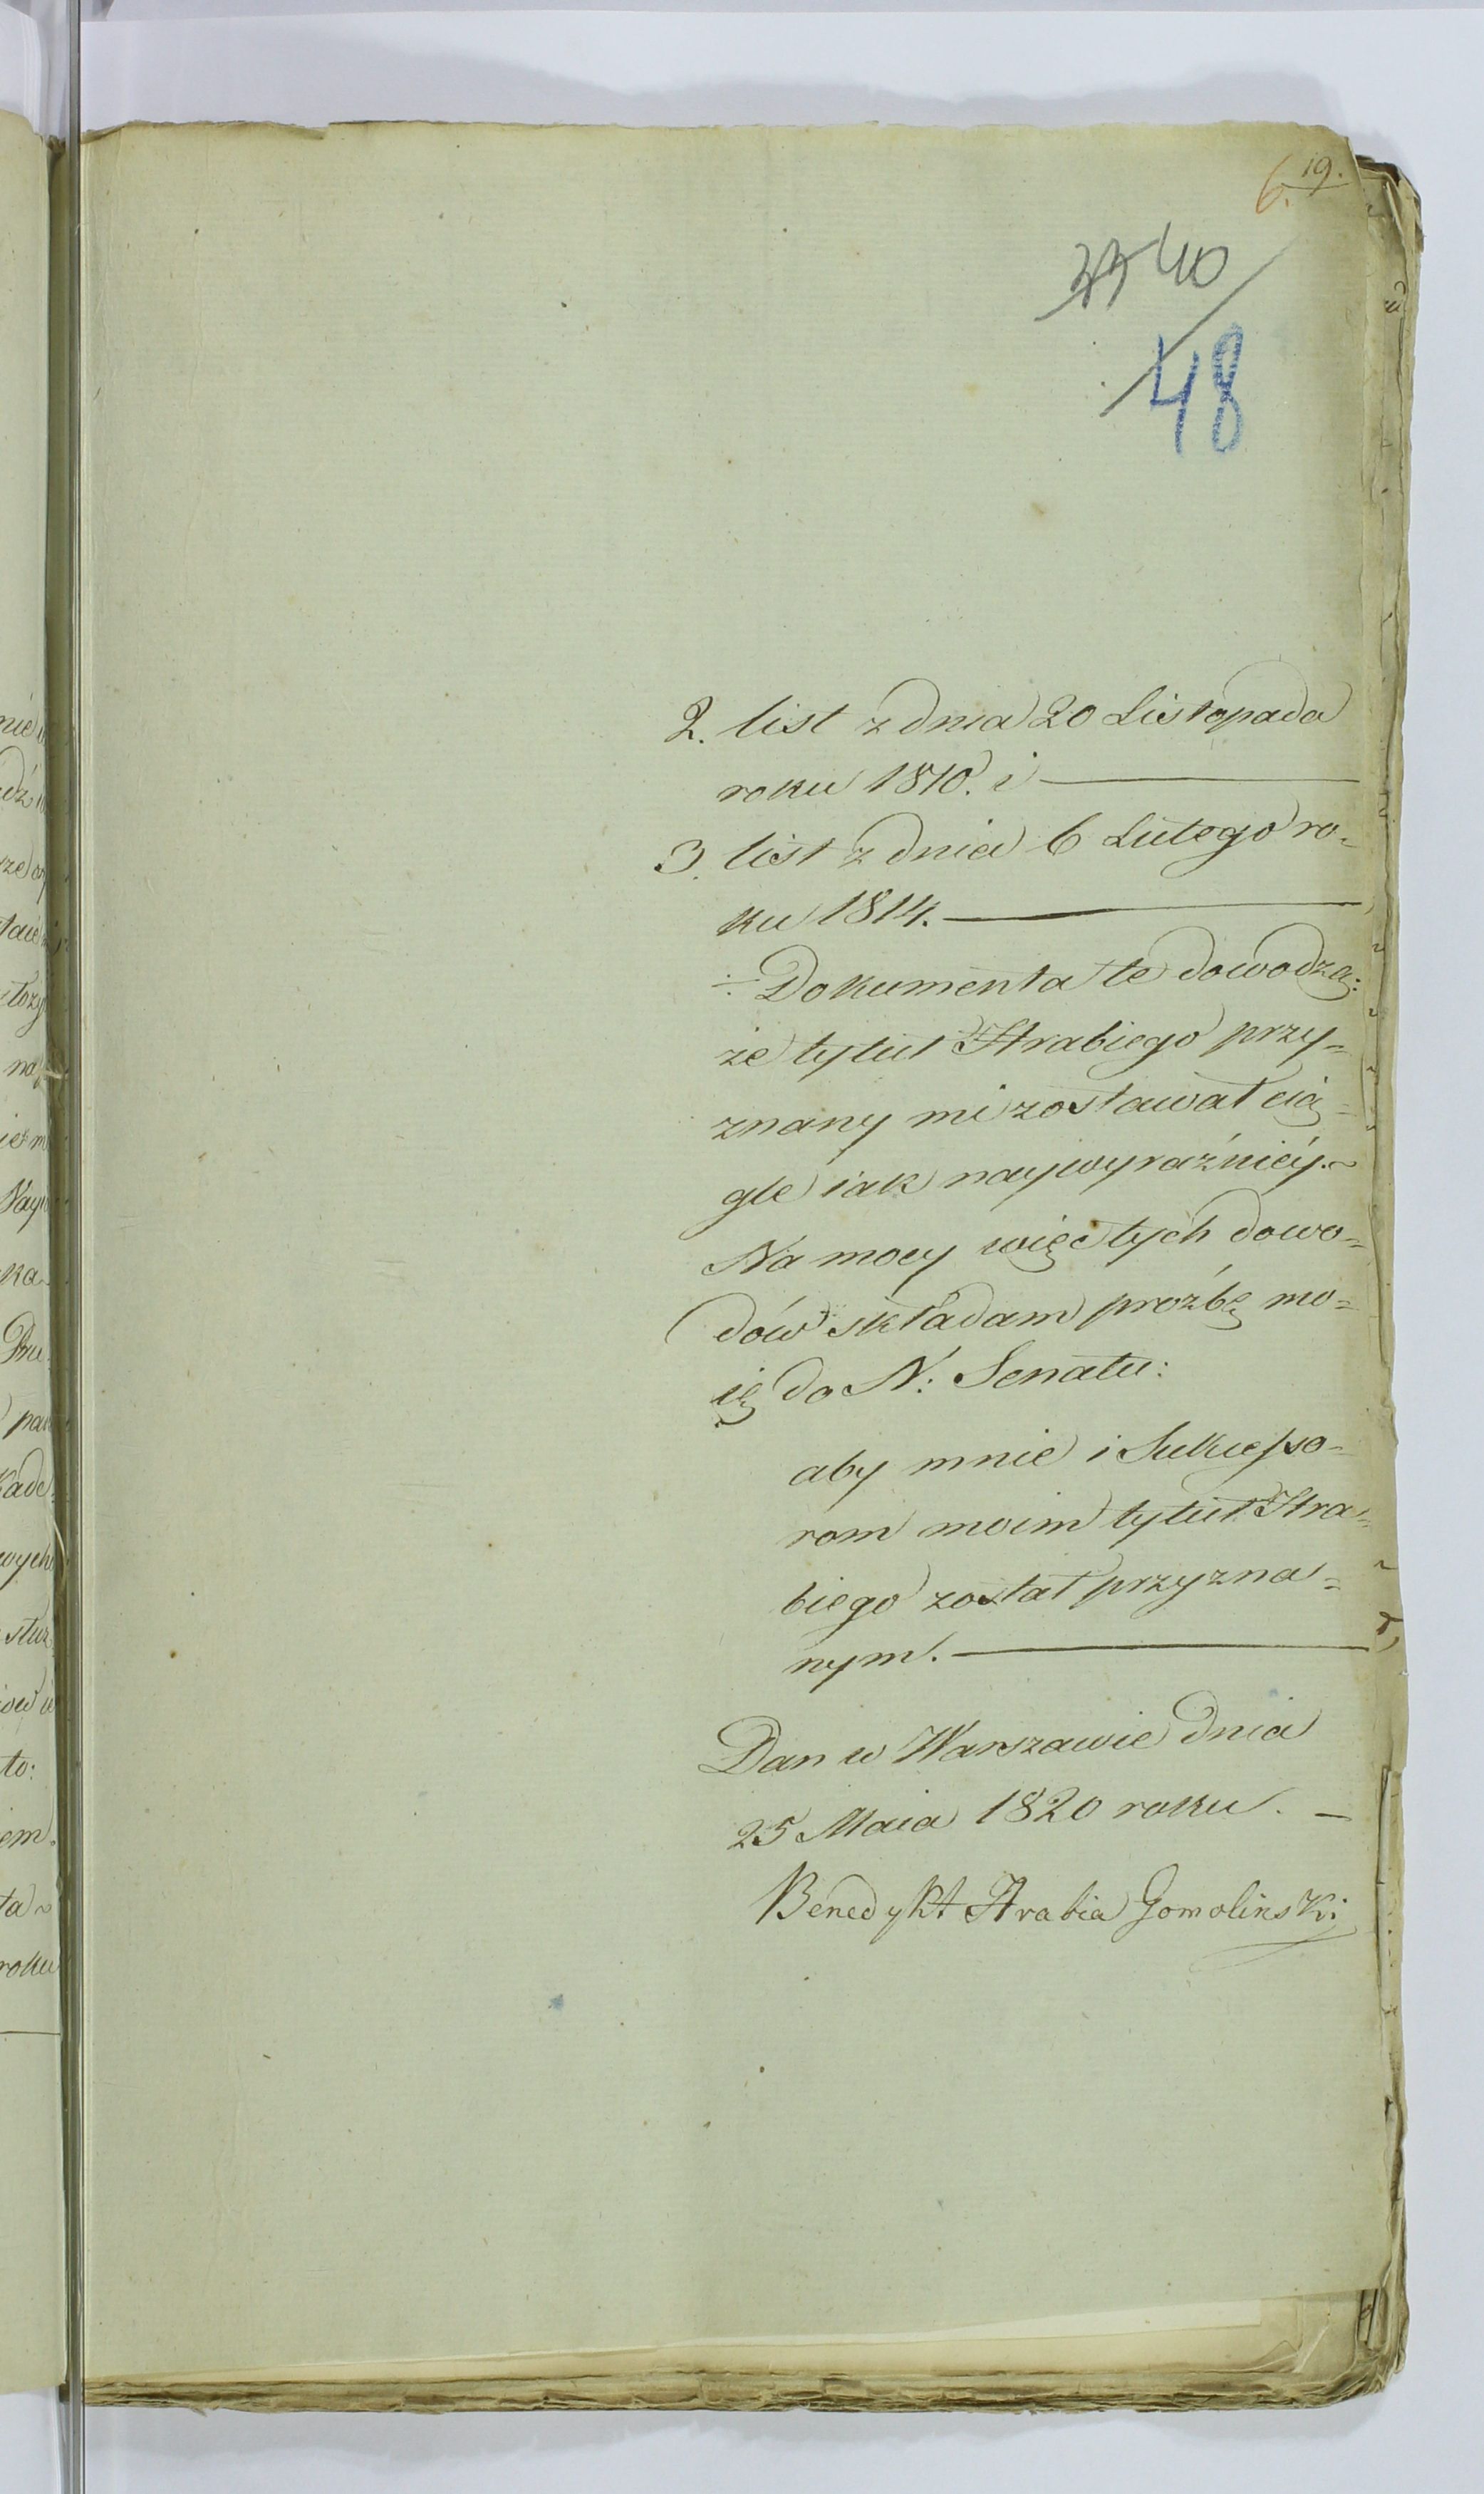 6. 19.
40
48
2. list z dnia 20 Listopada
roku 1810. i —
3. list z dnia 6 Lutego ro-
ku 1814. —
÷ Dokumenta te dowodzą:
że tytuł Hrabiego przy=
znany mi zostawał cią=
gle iak naywyraźniéy.~
Na mocy więc tych dowo=
dów składam proźbę mo=
ię do N: Senatu:
aby mnie i Sukcesso-
rom moim tytuł Hra=
biego został przyzna=
nym. —
Dan w Warszawie dnia
25 Maia 1820 roku. —
Benedykt Hrabia Gomolinski